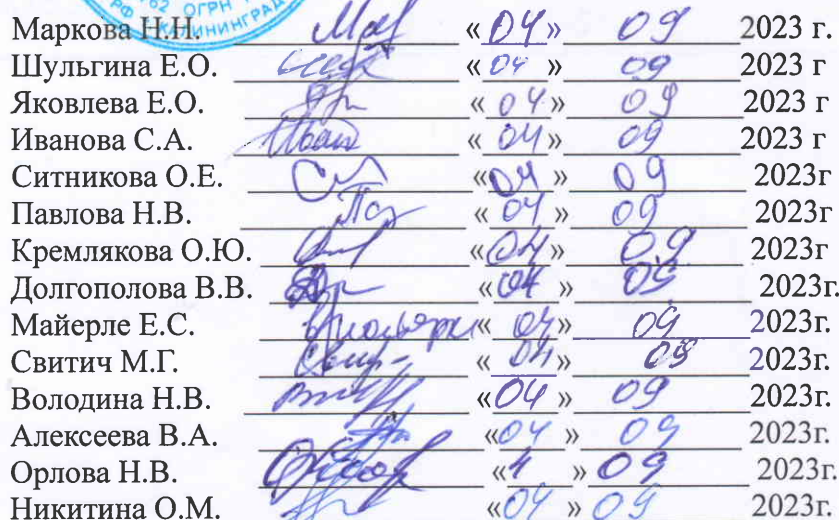 762 ОГРН
РФ
ИНИНГРАД
Маркова Н.Н. «04» 09 2023 г.
Шульгина Е.О. «04» 09 2023 г
Яковлева Е.О. «04» 09 2023 г
Иванова С.А. «04» 09 2023 г
Ситникова О.Е. «04» 09 2023г
Павлова Н.В. «04» 09 2023г
Кремлякова О.Ю. «04» 09 2023г
Долгополова В.В. «04» 09 2023г.
Майерле Е.С. «04» 09 2023г.
Свитич М.Г. «04» 09 2023г.
Володина Н.В. «04» 09 2023г.
Алексеева В.А. «04» 09 2023г.
Орлова Н.В. «4» 09 2023г.
Никитина О.М. «04» 09 2023г.